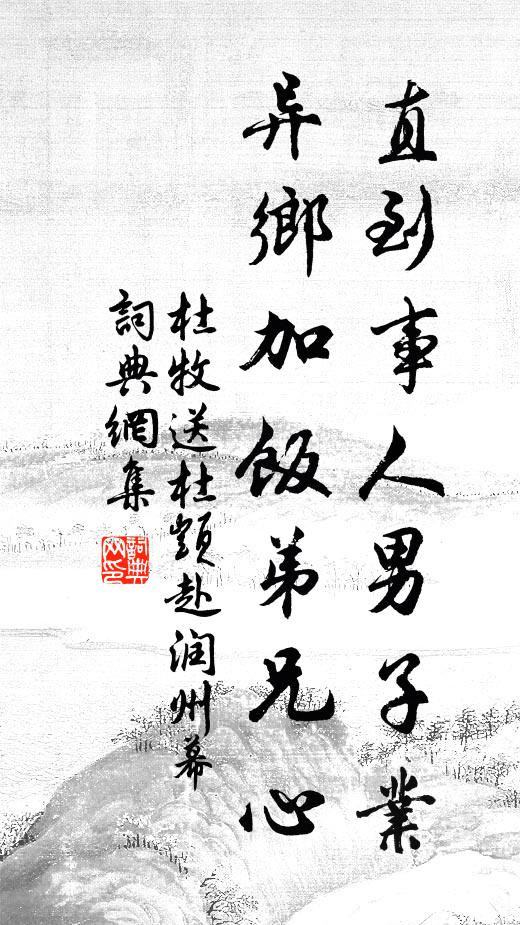 直到事人男子業
异鄉加飯弟兄心
杜牧送杜顗赴润州幕
詞典網集
詞典網印